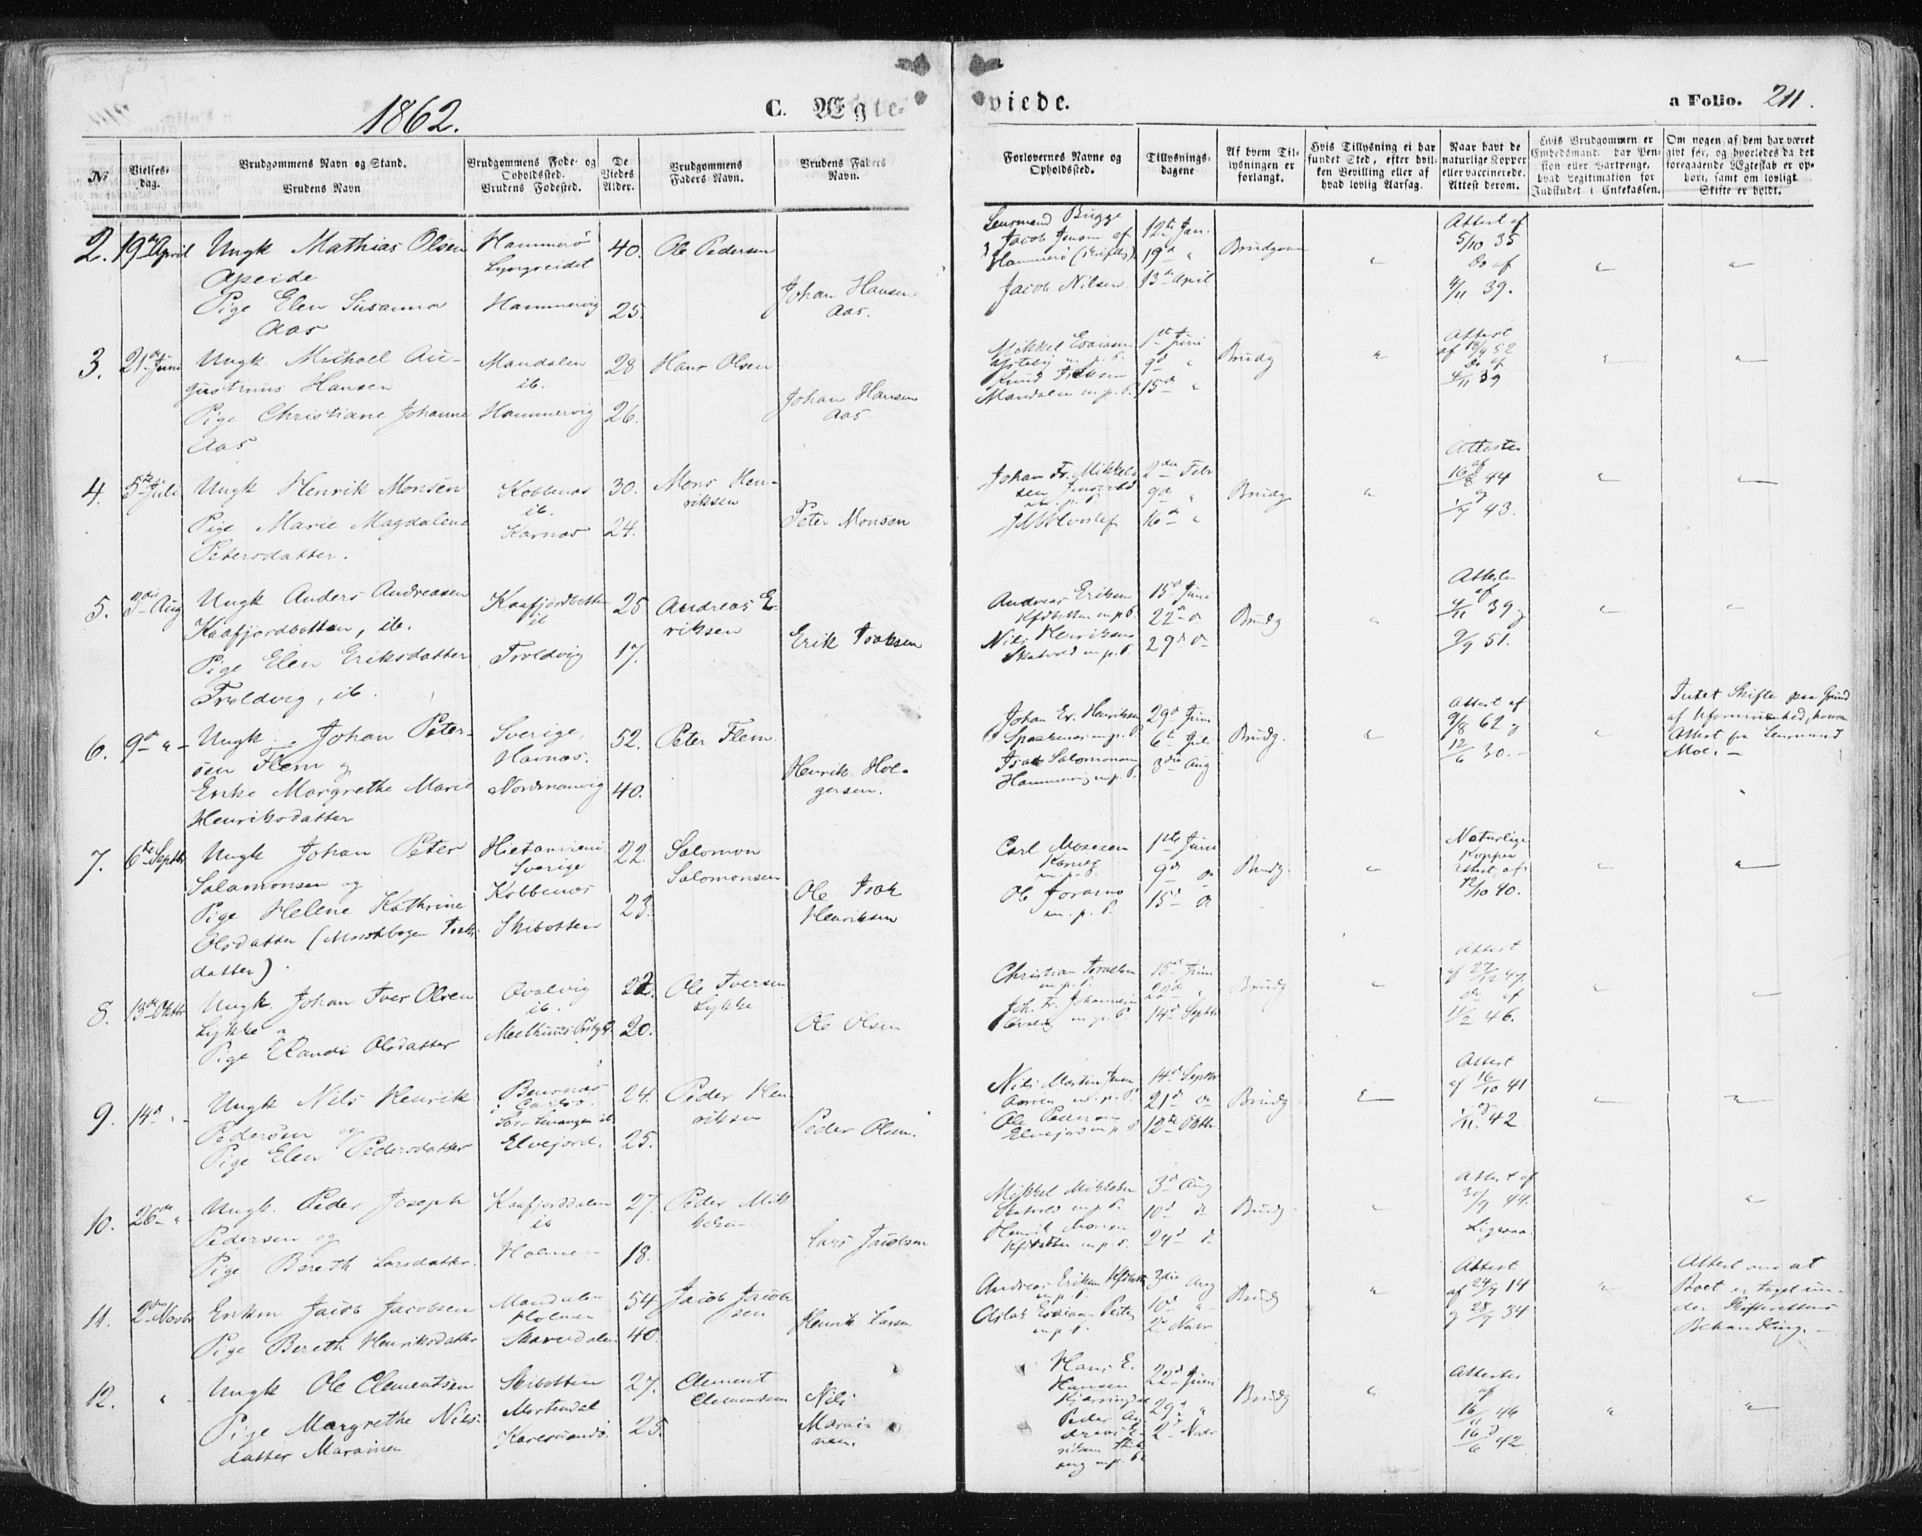 1862.
C. Ægte-
viede.
a Folio. 211.
No
Vielses-
dag.
Brudgommens Navn og Stand.
Brudens Navn
Brudgommens Føde- og
Opholdssted.
Brudens Fødested.
De
Viedes
Alder.
Brudgommens
Faders Navn.
Brudens Faders
Navn.
Forlovernes Navne og
Opholdssted.
Tillysnings-
dagene
Af hvem Til-
lysningen er
forlangt.
Hvis Tillysning ei har
fundet Sted, efter hvil-
ken Bevilling eller af
hvad lovlig Aarsag.
Naar havt de
naturlige Kopper
eller vaccinerede.
Attest derom.
Hvis Brudgommen er
Embedsmand, har Pen-
sion eller Vartpenge,
hvad Legitimation for
Indskudet i Enkekassen.
Om nogen af dem har været
gift før, og hvorledes da det
foregaaende Ægteskab er op-
hørt, samt om lovligt
Skifte er holdt.
2. 19de April Ungk Mathias Olsen
Apeide
Pige Elen Susanna
Aas
Hammerø
Lyngseidet
Hammervig
40.
25.
Ole Pedersen
Johan Hansen
Aas.
Lensmand Bugge
Jacob Jensen af
Hammerø (Skifte)
Jacob Nilsen
12te Jan.
19d "
13de April
Brudgom
"
Attest af
5/10 35
Do af
4/11 39.
"
"
3. 21de Juni Ungk. Michael Au-
gustinus Hansen
Pige Christiane Johanne
Aas
Mandalen
ib.
Hammervig
28
26.
Hans Olsen
Johan Hansen
Aas
Mikkel Esaiasen
m. p. P.
Mandalen m. p. P.
1ste Juni
9d "
15de "
Brudg
"
Attest
af 18/9 52
Do af
4/11 39
"
"
4. 5te Juli Ungk Henrik Monsen
Pige Marie Magdalene
Petersdatter.
Kobbenæs
ib.
Karnæs
30.
24.
Mons Hen-
riksen
Peter Monsen
Johan Fr. Mikkel-
sen
m. p. P.
2den Febr
9de "
16de "
Brudg
"
Attester
af
16/8 44
og
1/7 43.
"
"
5. 3die Aug Ungk Anders Andreasen
Kaafjordbotten, ib.
Pige Elen Eriksdatter
Troldvig, ib.
Kaafjordbotten
ib
Troldvig
25
17.
Andreas E-
riksen
Erik Isaksen
Andreas Eriksen
Kfdbotten m p P.
Nils Henriksen
Skatvold m. p. P.
15d Juni
22de do
29de do
Brudg
"
Attester
af
4/11 39 og
2/9 51.
"
"
6. 9de " Ungk. Johan Peter-
sen Flem og
Enke Margrethe Marie
Henriksdatter
Sverige,
Karnæs.
Nordmanvig
52.
40.
Peter Flem.
Henrik Hol-
gersen.
Johan Er. Henriksen
m. p. P.
Isak Salomonsen
Hammervig m. p. P.
29d Juni
6te Juli
3die Aug
Brudg.
"
Attest af
9/8 62 og
12/6 30.
"
Intet Skifte paa Grund
af Uformuenhed, hvorom
Attest fra Lensmand
Moe.
7. 6te Septbr Ungk Johan Peter
Salamonsen og
Pige Helene Kathrine
Olsdatter (Ministbogen Isaks
datter).
Hietaniemi
Sverige
Kobbenæs
Skibotten
22
23.
Salomon
Salomonsen
Ole Isak
Henriksen
Carl Mosesen
Karnes
m. p. P.
Ole
m. p. P.
1ste Juni
9d do
15d do
Brudg.
"
Naturlige
Kopper
Attest af
12/10 40.
"
"
8. 13de Oktbr Ungk Johan Iver Olsen
Lykke og
Pige Randi Olsdatter
Qvalvig
ib.
22.
20.
Ole Iversen
Lykke
Ole Olsen
Christian
m. p. P.
Joh. Fr. Johannesen
m. p. P.
15d Juni
22de "
14d Septbr
Brudg
"
Attest
af 27/12 47.
do af
11/2 46.
"
"
9. 14d " Ungk Nils Henrik
Pedersen og
Pige Elen Pedersdatter
Elvejord.
24.
25.
Peder Hen
riksen
Peder Olsen.
Nils Martin Jensen
m. p. P.
Ole Pedersen
Elvejord m p P
14d Septbr
21de do
12te Oktbr
Brudg
"
Attest
af 16/10 41
1/11. 42
"
"
10. 26de " Ungk. Peder Joseph
Pedersen og
Pige Bereth Larsdatter
Kaafjorddalen
ib
Holmen
27.
18.
Peder Mik
kelsen
Lars Jacobsen
Mikkel Mikkelsen
Skatvold m p P.
Henrik Monsen
Kfdbotten m p. P.
3d Aug
10d do
24d do
Brudg
"
Attest af
30/9 44.
Ligesaa.
"
"
11. 2den Novbr Enkem Jacob Jacobsen
Pige Bereth Henriksdatter
Mandalen
Holmen
Skavudalen
54
40.
Jacob Jacob-
sen
Henrik Larsen
Andreas Eriksen Kfdbotten
m. p. P.
Aslak Esaiasen
m p P.
3die Aug
10d "
2d Novbr
Brudg
"
Attest
af 24/7 14
og 28/7 34
"
Attest om at
Boet er taget un-
der Skifterettens
Behandling.
12. " Ungk Ole Clementsen
Pige Margrethe Nils-
datter Marainen
Skibotten
Mortendal
Karesuando
27.
25.
Clement
Clementsen
Nils
Marai-
nen.
Hans E.
Hansen
Peder An
dreas E-
riksen
m. p. P.
22d Juni
29d "
2d Novbr
Brudg
"
Attester
af
16/11 46
og
16/6 42
"
"